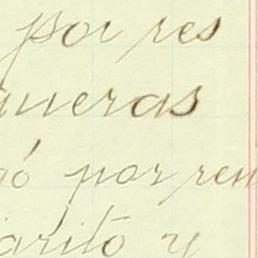 por res
ueras
gó por ren
arito y